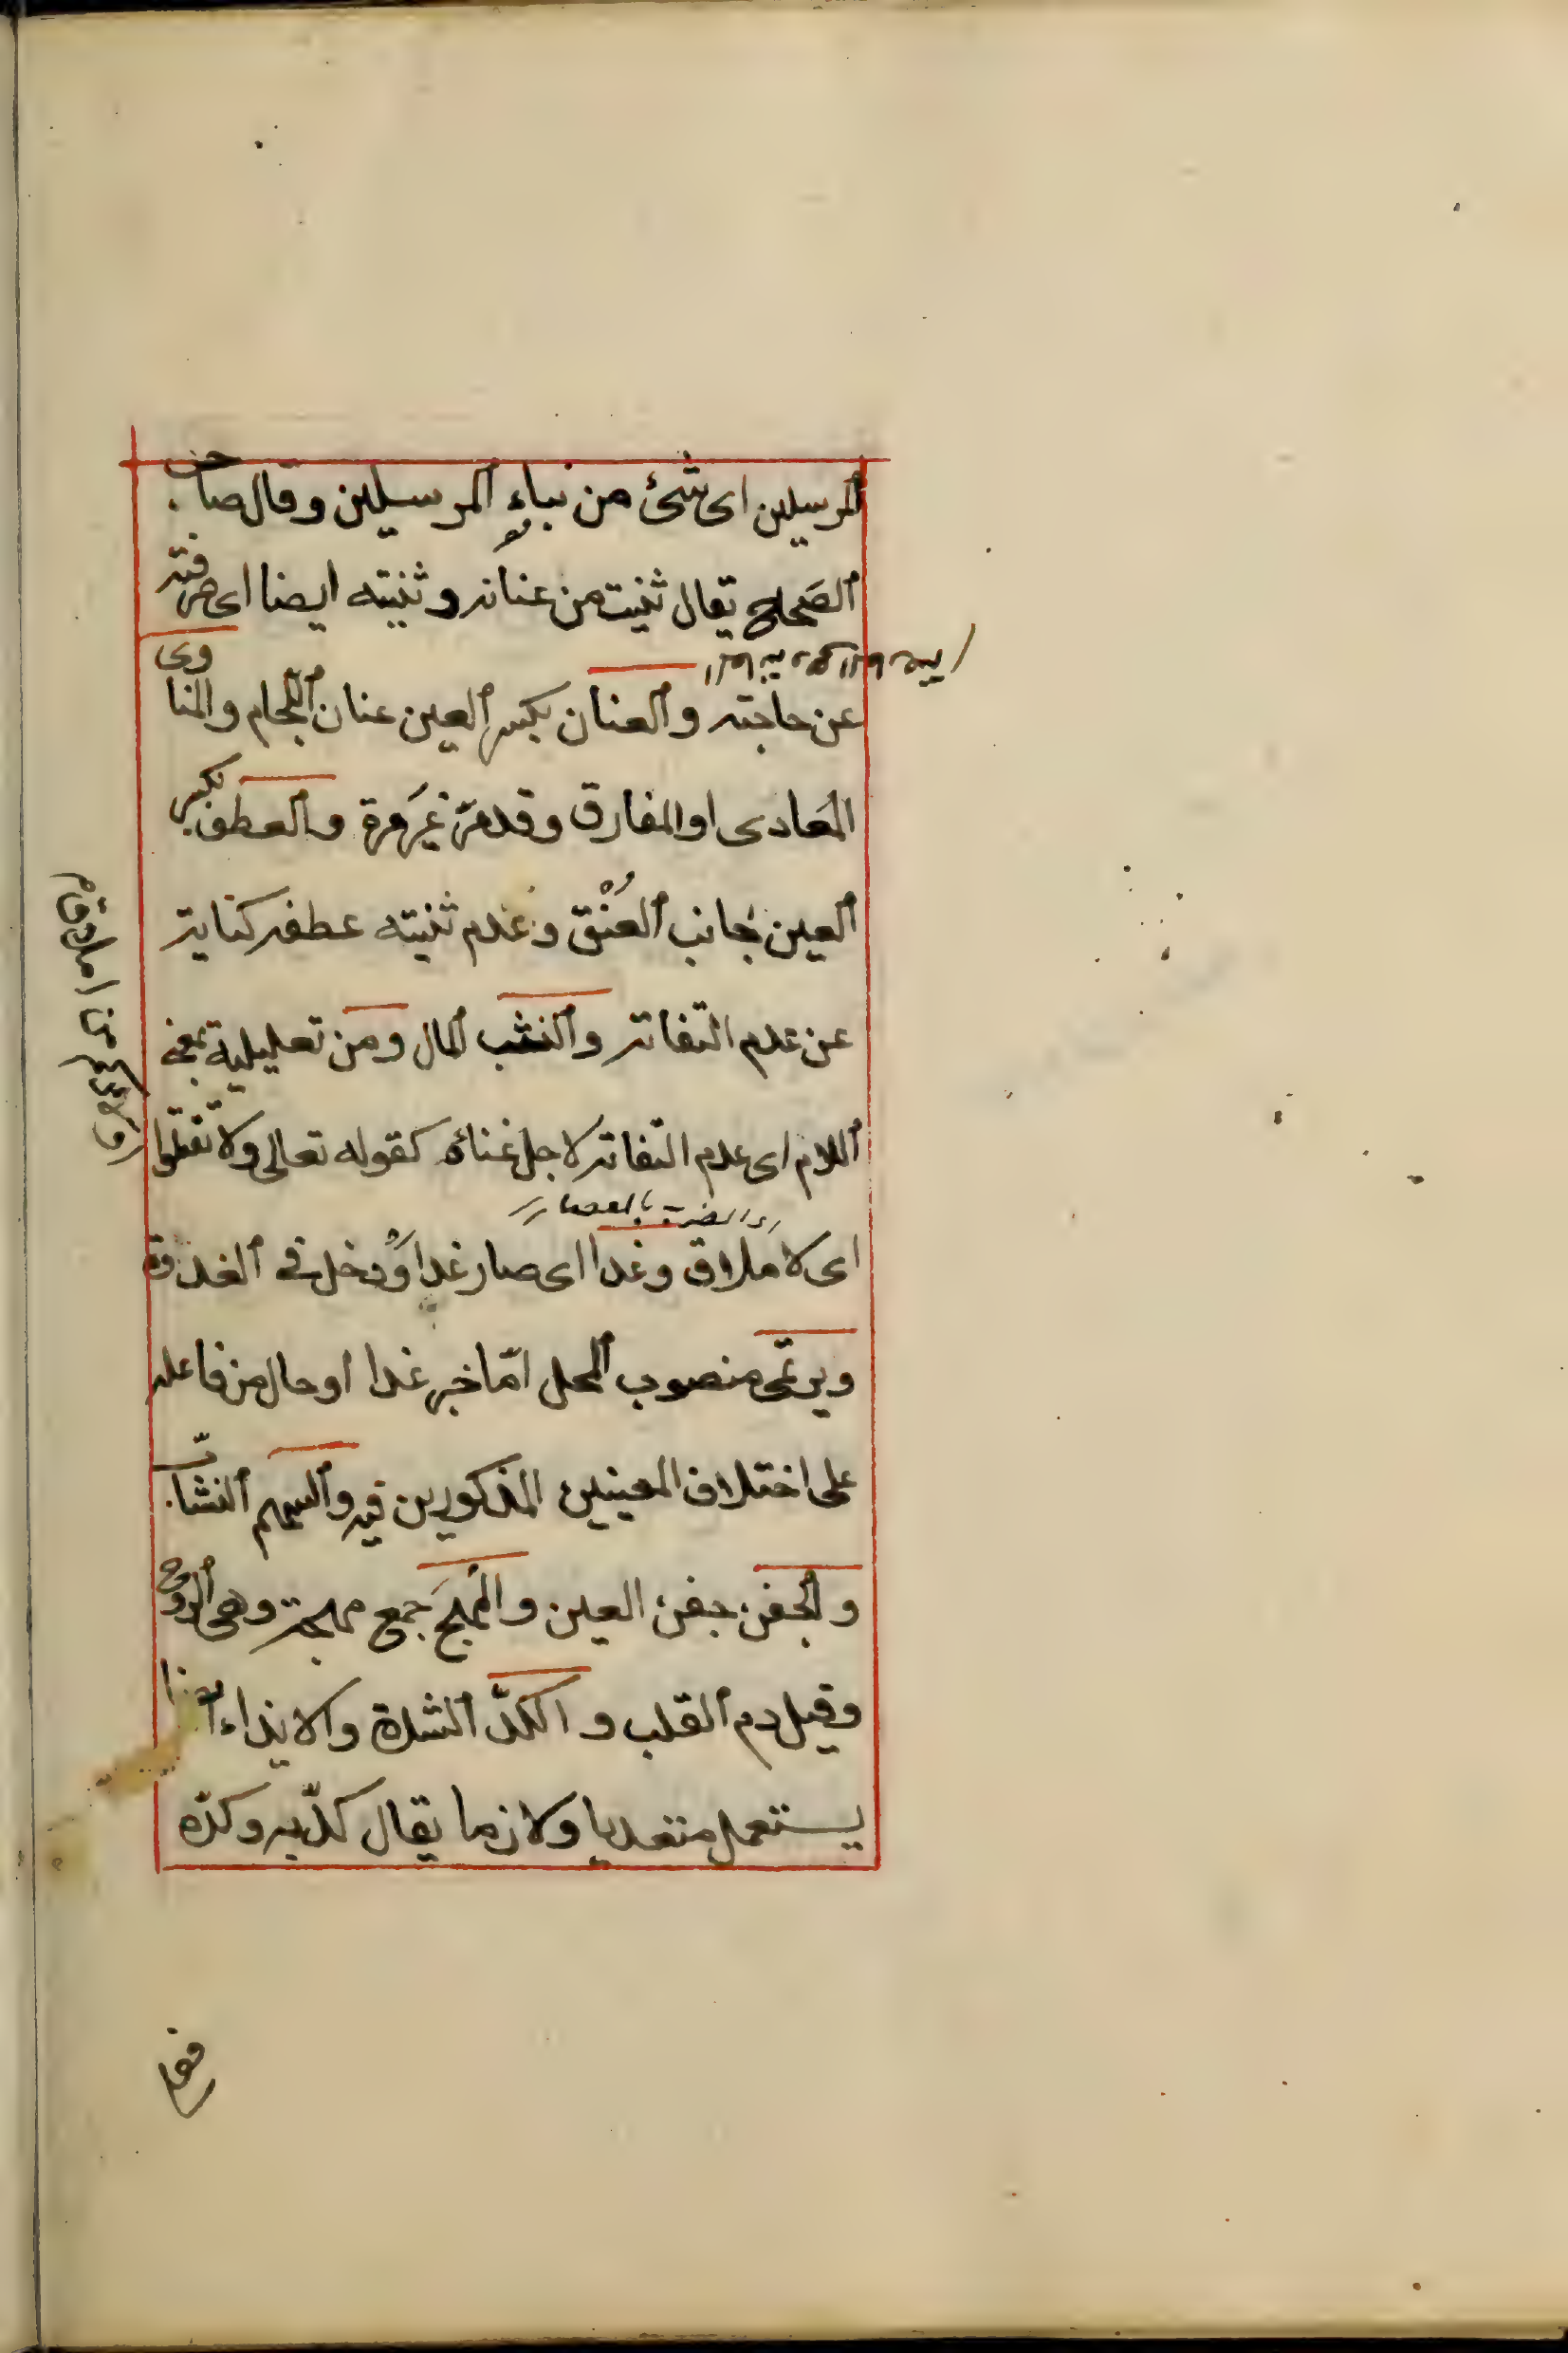 المرسلين اى شئ من نباء المرسلين وقال صاحب
الصحاح يقال ثنيت من عنانه وثنيته ايضا اى صرفته
عن حاجته والعنان بكسر العين عنان اللجام والمناوى
المعادى او المفارق وقد مرّ غير مرة والعطف بكسر
العين جانب العنق وعدم ثنيته عطفه كناية
عن عدم التفاته والنشب المال ومن تعليلية بمعنى
اللام اى عدم التفاته لاجل غناه كقوله تعالى ولا تقتلوا
اولادكم من املاق
اى لاملاق وغدا اى صار غدا ودخل فى الغدوة
ويرتمى منصوب المحل امّا خبر غدا او حال من فاعله
على اختلاف المعنيين المذكورين فيه والسهم النشّاب
والجفن جفن العين والمهج جمع مهجة وهى الروح
وقيل دم القلب والكدّ الشدة والايذاء ايضا
يستعمل متعديا ولازما يقال كدّ به وكدّه